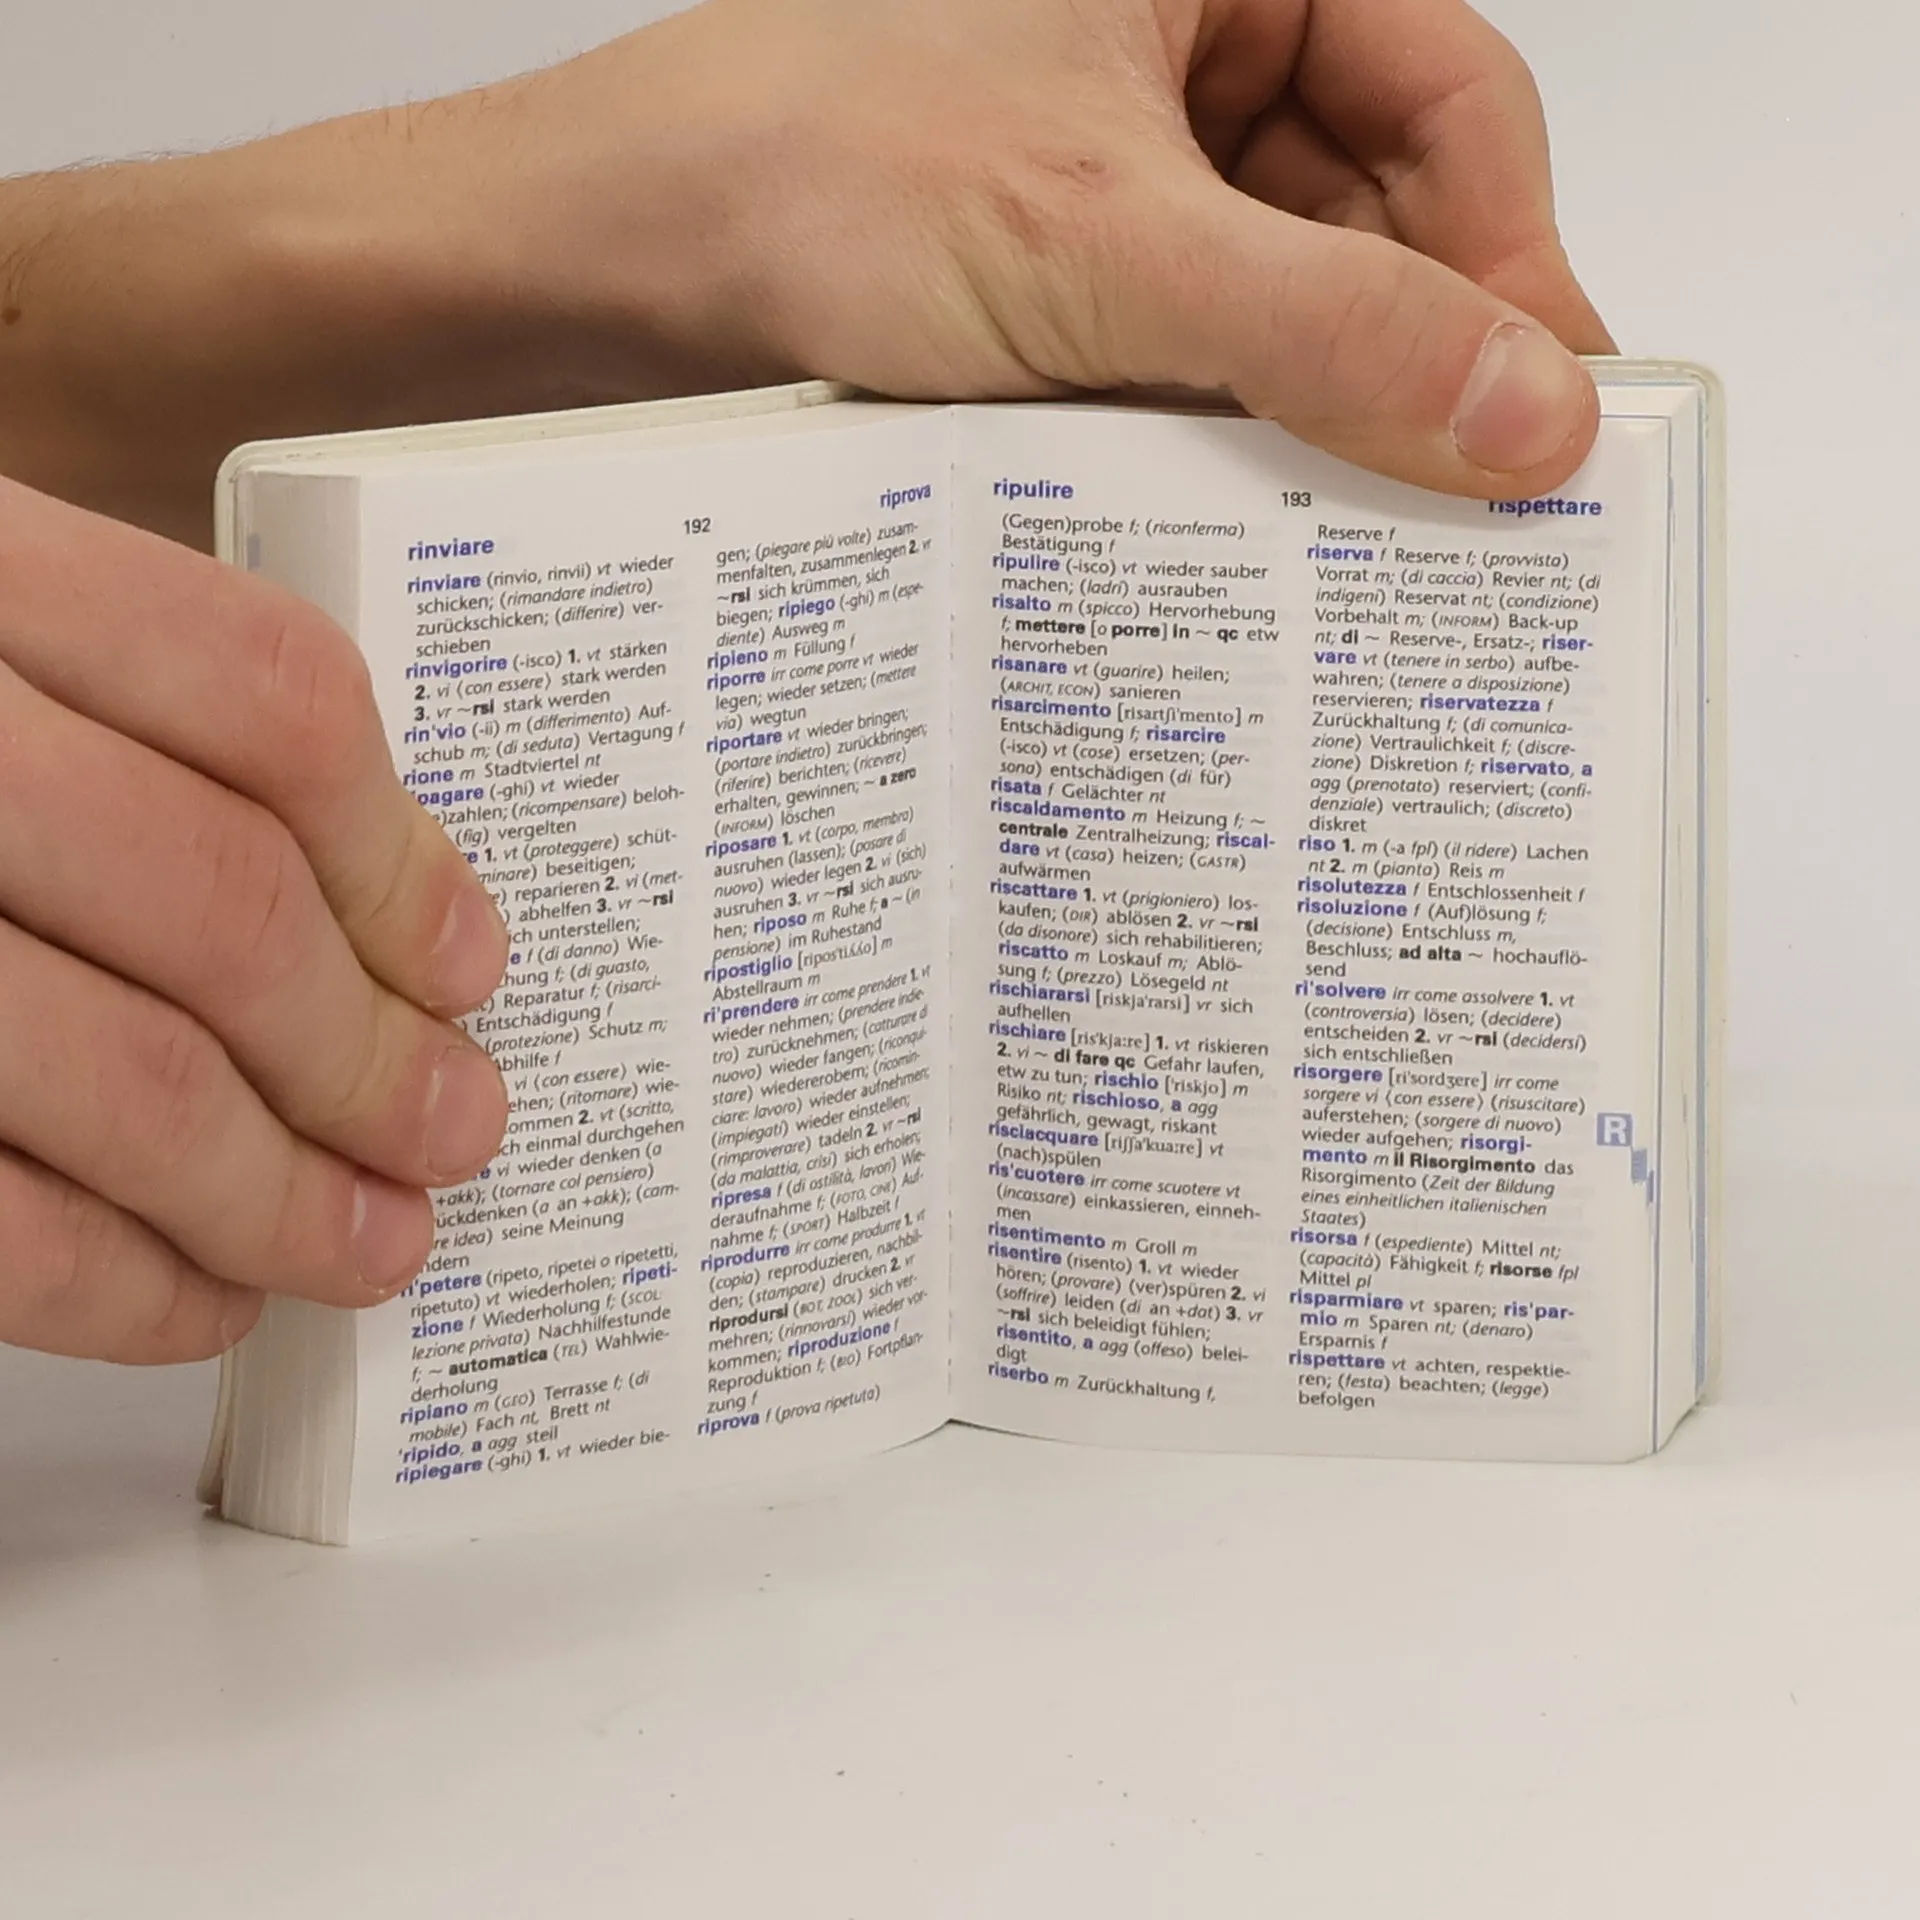 rinviare
192
riprova
rinviare (rinvio, rinvii) vt wieder
schicken; (rimandare indietro)
zurückschicken; (differire) ver-
schieben
rinvigorire (-isco) 1. vt stärken
2. vi (con essere) stark werden
3. vr ~rsi stark werden
rin'vio (-ii) m (differimento) Auf-
schub m; (di seduta) Vertagung f
rione m Stadtviertel nt
pagare (-ghi) vt wieder
)zahlen; (ricompensare) beloh-
(fig) vergelten
1. vt (proteggere) schüt-
minare) beseitigen;
) reparieren 2. vi (met-
) abhelfen 3. vr ~rsi
ich unterstellen;
e f (di danno) Wie-
hung f; (di guasto,
) Reparatur f; (risarci-
) Entschädigung f
(protezione) Schutz m;
Abhilfe f
vi (con essere) wie-
ehen; (ritornare) wie-
ommen 2. vt (scritto,
ch einmal durchgehen
e vi wieder denken (a
+akk); (tornare col pensiero)
ückdenken (a an +akk); (cam-
re idea) seine Meinung
ndern
ri'petere (ripeto, ripetei o ripetetti,
ripetuto) vt wiederholen; ripeti-
zione f Wiederholung f; (SCOL:
lezione privata) Nachhilfestunde
f; ~ automatica (TEL) Wahlwie-
derholung
ripiano m (GEO) Terrasse f; (di
mobile) Fach nt, Brett nt
'ripido, a agg steil
ripiegare (-ghi) 1. vt wieder bie-
gen; (piegare più volte) zusam-
menfalten, zusammenlegen 2. vr
~rsi sich krümmen, sich
biegen; ripiego (-ghi) m (espe-
diente) Ausweg m
ripieno m Füllung f
riporre irr come porre vt wieder
legen; wieder setzen; (mettere
via) wegtun
riportare vt wieder bringen;
(portare indietro) zurückbringen;
(riferire) berichten; (ricevere)
erhalten, gewinnen; ~ a zero
(INFORM) löschen
riposare 1. vt (corpo, membro)
ausruhen (lassen); (posare di
nuovo) wieder legen 2. vi (sich)
ausruhen 3. vr ~rsi sich ausru-
hen; riposo m Ruhe f; a ~ (in
pensione) im Ruhestand
ripostiglio [ripos'tiʎʎo] m
Abstellraum m
ri'prendere irr come prendere 1. vt
wieder nehmen; (prendere indie-
tro) zurücknehmen; (catturare di
nuovo) wieder fangen; (riconqui-
stare) wiedererobern; (ricomin-
ciare: lavoro) wieder aufnehmen;
(impiegati) wieder einstellen;
(rimproverare) tadeln 2. vr ~rsi
(da malattia, crisi) sich erholen;
ripresa f (di ostilità, lavori) Wie-
deraufnahme f; (FOTO, CINE) Auf-
nahme f; (SPORT) Halbzeit f
riprodurre irr come produrre 1. vt
(copia) reproduzieren, nachbil-
den; (stampare) drucken 2. vr
riprodursi (BOT, ZOOL) sich ver-
mehren; (rinnovarsi) wieder vor-
kommen; riproduzione f
Reproduktion f; (BIO) Fortpflan-
zung f
riprova f (prova ripetuta)
ripulire
193
rispettare
(Gegen)probe f; (riconferma)
Bestätigung f
ripulire (-isco) vt wieder sauber
machen; (ladri) ausrauben
risalto m (spicco) Hervorhebung
f; mettere [o porre] in ~ qc etw
hervorheben
risanare vt (guarire) heilen;
(ARCHIT, ECON) sanieren
risarcimento [risartʃi'mento] m
Entschädigung f; risarcire
(-isco) vt (cose) ersetzen; (per-
sona) entschädigen (di für)
risata f Gelächter nt
riscaldamento m Heizung f; ~
centrale Zentralheizung; riscal-
dare vt (casa) heizen; (GASTR)
aufwärmen
riscattare 1. vt (prigioniero) los-
kaufen; (DIR) ablösen 2. vr ~rsi
(da disonore) sich rehabilitieren;
riscatto m Loskauf m; Ablö-
sung f; (prezzo) Lösegeld nt
rischiararsi [riskja'rarsi] vr sich
aufhellen
rischiare [ris'kja:re] 1. vt riskieren
2. vi ~ di fare qc Gefahr laufen,
etw zu tun; rischio ['riskjo] m
Risiko nt; rischioso, a agg
gefährlich, gewagt, riskant
risciacquare [riʃʃa'kua:re] vt
(nach)spülen
ris'cuotere irr come scuotere vt
(incassare) einkassieren, einneh-
men
risentimento m Groll m
risentire (risento) 1. vt wieder
hören; (provare) (ver)spüren 2. vi
(soffrire) leiden (di an +dat) 3. vr
~rsi sich beleidigt fühlen;
risentito, a agg (offeso) belei-
digt
riserbo m Zurückhaltung f,
Reserve f
riserva f Reserve f; (provvista)
Vorrat m; (di caccia) Revier nt; (di
indigeni) Reservat nt; (condizione)
Vorbehalt m; (INFORM) Back-up
nt; di ~ Reserve-, Ersatz-; riser-
vare vt (tenere in serbo) aufbe-
wahren; (tenere a disposizione)
reservieren; riservatezza f
Zurückhaltung f; (di comunica-
zione) Vertraulichkeit f; (discre-
zione) Diskretion f; riservato, a
agg (prenotato) reserviert; (confi-
denziale) vertraulich; (discreto)
diskret
riso 1. m (-a fpl) (il ridere) Lachen
nt 2. m (pianta) Reis m
risolutezza f Entschlossenheit f
risoluzione f (Auf)lösung f;
(decisione) Entschluss m,
Beschluss; ad alta ~ hochauflö-
send
ri'solvere irr come assolvere 1. vt
(controversia) lösen; (decidere)
entscheiden 2. vr ~rsi (decidersi)
sich entschließen
risorgere [ri'sordʒere] irr come
sorgere vi (con essere) (risuscitare)
auferstehen; (sorgere di nuovo)
wieder aufgehen; risorgi-
mento m il Risorgimento das
Risorgimento (Zeit der Bildung
eines einheitlichen italienischen
Staates)
risorsa f (espediente) Mittel nt;
(capacità) Fähigkeit f; risorse fpl
Mittel pl
risparmiare vt sparen; ris'par-
mio m Sparen nt; (denaro)
Ersparnis f
rispettare vt achten, respektie-
ren; (festa) beachten; (legge)
befolgen
R